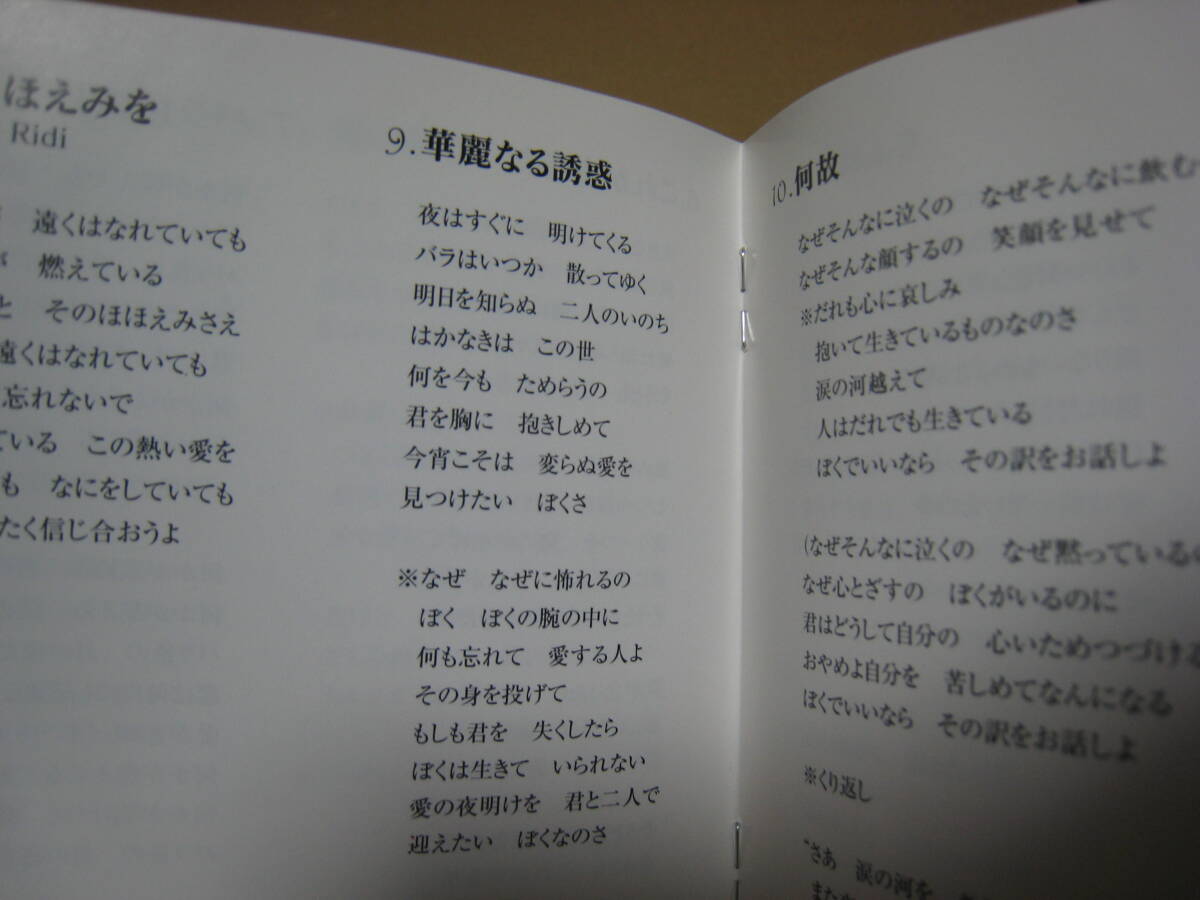 ほえみを
Ridi
遠くはなれていても
が 燃えている
と そのほほえみさえ
遠くはなれていても
忘れないで
ている この熱い愛を
も なにをしていても
たく信じ合おうよ
9.華麗なる誘惑
夜はすぐに 明けてくる
バラはいつか 散ってゆく
明日を知らぬ 二人のいのち
はかなきは この世
何を今も ためらうの
君を胸に 抱きしめて
今宵こそは 変らぬ愛を
見つけたい ぼくさ
※なぜ なぜに怖れるの
ぼく ぼくの腕の中に
何も忘れて 愛する人よ
その身を投げて
もしも君を 失くしたら
ぼくは生きて いられない
愛の夜明けを 君と二人で
迎えたい ぼくなのさ
10.何故
なぜそんなに泣くの なぜそんなに飲む
なぜそんな顔するの 笑顔を見せて
※だれも心に哀しみ
抱いて生きているものなのさ
涙の河越えて
人はだれでも生きている
ぼくでいいなら その訳をお話しよ
(なぜそんなに泣くの なぜ黙っているの
なぜ心とざすの ぼくがいるのに
君はどうして自分の 心いためつづける
おやめよ自分を 苦しめてなんになる
ぼくでいいなら その訳をお話しよ
※くり返し
"さあ 涙の河を